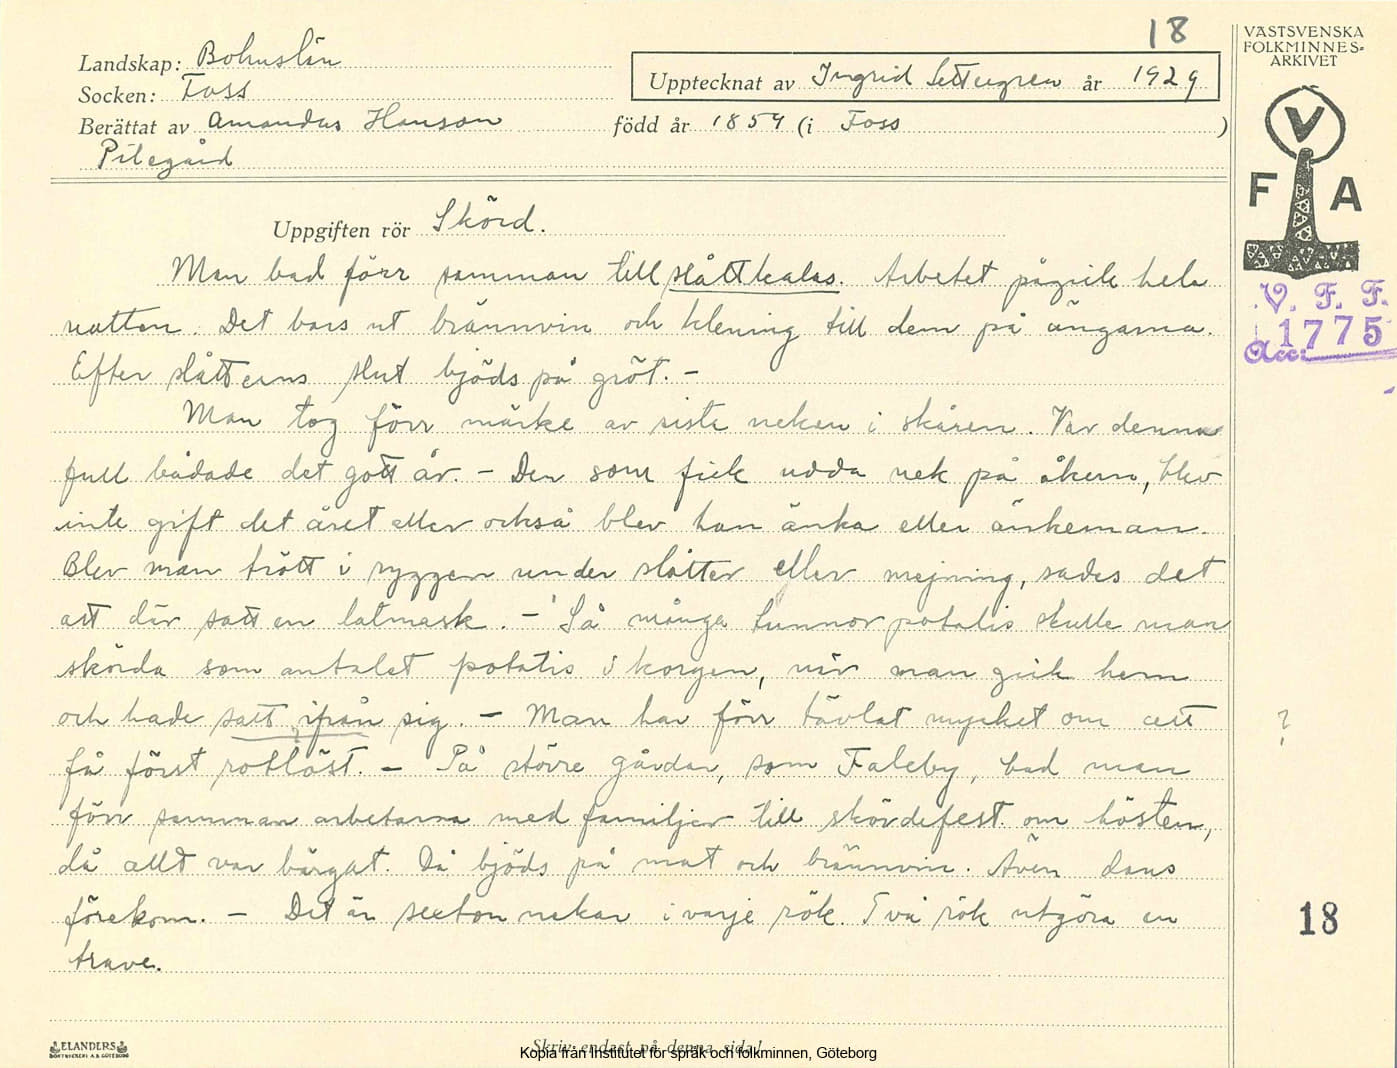 18
VÄSTSVENSKA
FOLKMINNES-
ARKIVET
Landskap: Bohuslän
Upptecknat av Ingrid år 1929
Socken: Foss
Berättat av Amandus Hanson född år 1859 (i Foss )
Pilegård
V
F A
V. F. F.
Acc: 1775
Uppgiften rör Skörd.
Man bad förr samman till slåttkalas. Arbetet pågick hela
natten. Det bars ut brännvin och klening till dem på ängarna.
Efter slåtterns slut bjöds på gröt. -
Man tog förr märke av sista neken i skåren. Var denna
full bådade det gott år. - Den som fick udda nek på åkern, blev
inte gift det året eller också blev han änka eller änkeman.
Blev man trött i ryggen under slåtter eller mejning, sades det
att där satt en latmask. - Så många tunnor potatis skulle man
skörda som antalet potatis i korgen, när man gick hem
och hade satt ifrån sig. - Man har förr tävlat mycket om att
?
få först rotlöst. - På större gårdar, som Faleby, bad man
förr samman arbetarna med familjer till skördefest om hösten,
då allt var bärgat. Då bjöds på mat och brännvin. Även dans
förekom. - Det är sexton nekar i varje rök. Två rök utgöra en
18
trave.
ELANDERS
BOKTRYCKERI A.B. GÖTEBORG
Skriv endast på denna sida!
Kopia från Institutet för språk och folkminnen, Göteborg